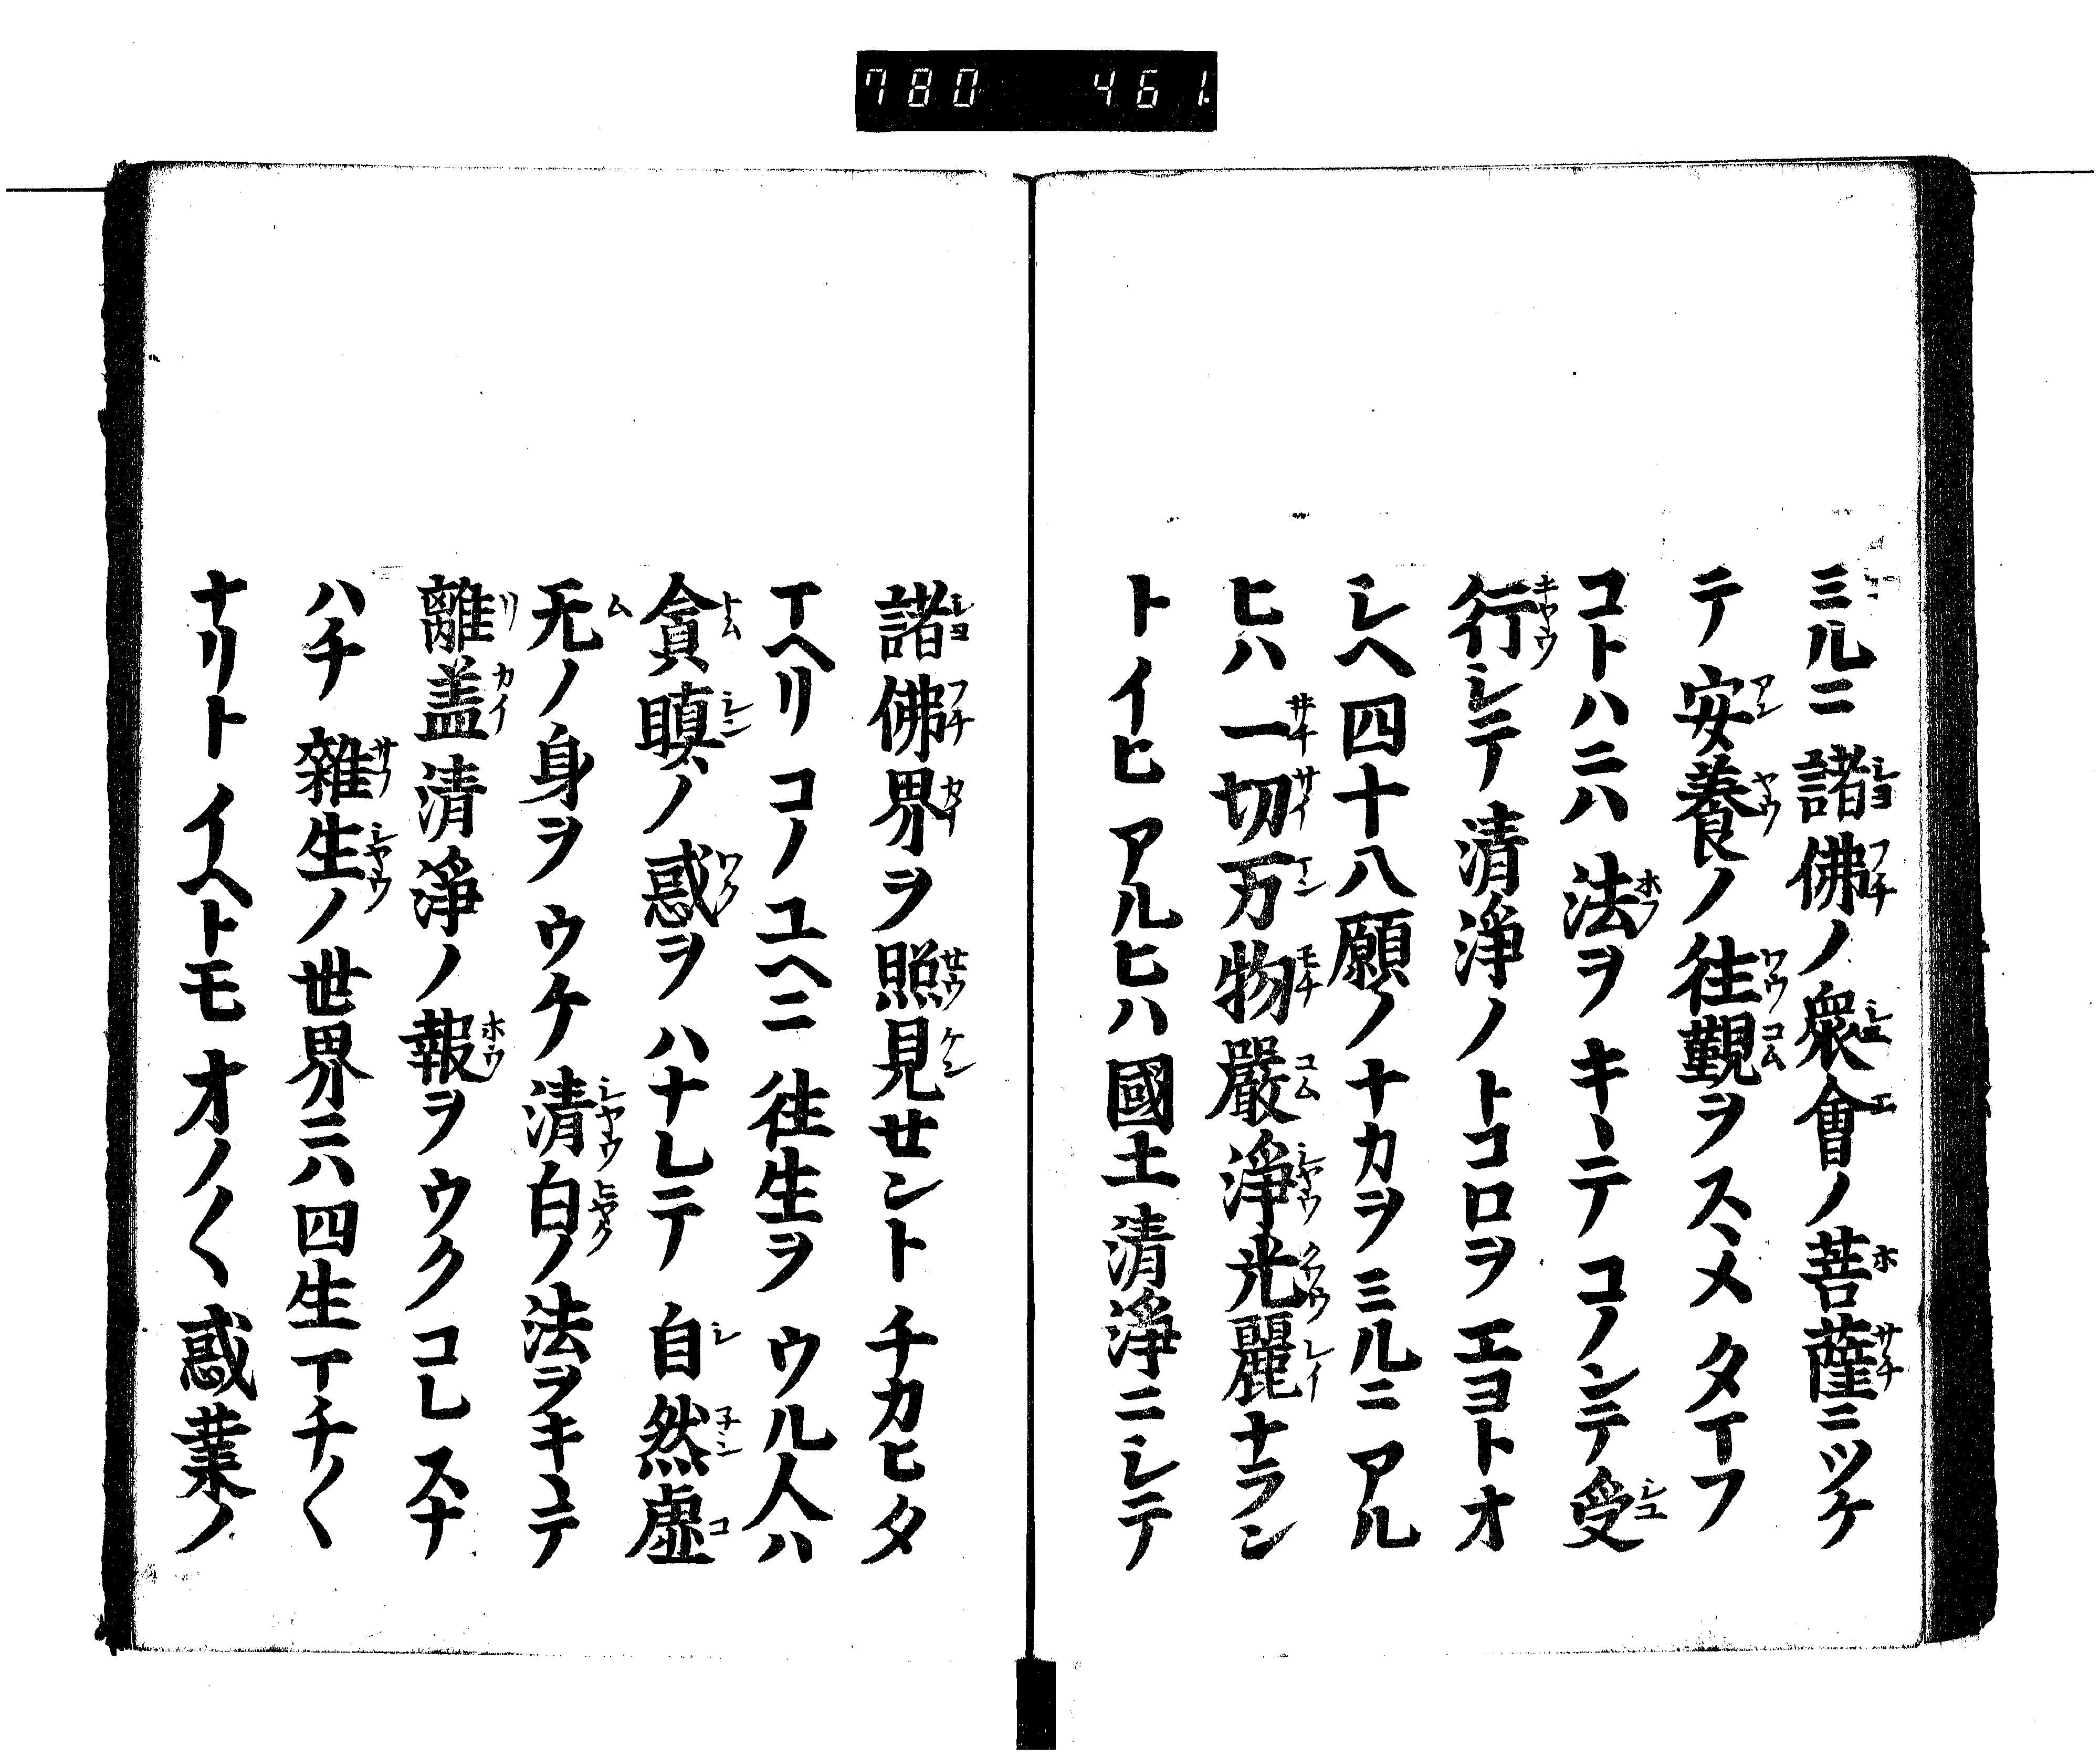 780 461
ミルニ諸佛ノ衆會ノ菩薩ニツケ
テ安養ノ往覲ヲスヽメタマフ
コトハニハ法ヲキヽテコノンテ受
行シテ清淨ノトコロヲエヨトオ
シヘ四十八願ノナカヲミルニアル
ヒハ一切万物嚴淨光麗ナラン
トイヒアルヒハ國土清淨ニシテ
諸佛界ヲ照見セントチカヒタ
マヘリコノユヘニ往生ヲウル人ハ
貪瞋ノ惑ヲハナレテ自然虚
无ノ身ヲウケ清白ノ法ヲキヽテ
離盖清淨ノ報ヲウクコレスナ
ハチ雜生ノ世界ニハ四生マチ〱
ナリトイヘトモオノ〱惑業ノ